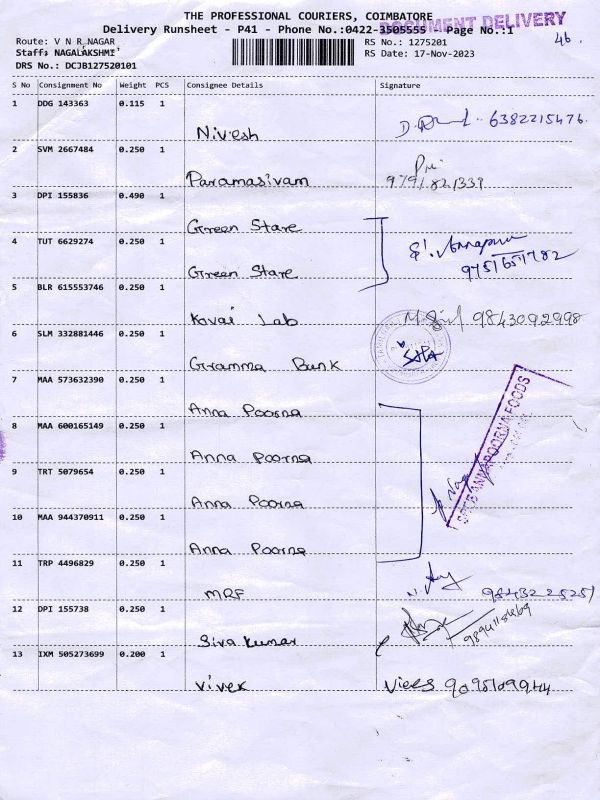 THE PROFESSIONAL COURIERS, COIMBATORE
DOCUMENT DELIVERY
Delivery Runsheet - P41 - Phone No.:0422-3505555 - Page No.:1
46.
Route: V N R NAGAR
RS No.: 1275201
Staff: NAGALAKSHMI
RS Date: 17-Nov-2023
DRS No.: DCJB127520101
S No Consignment No Weight PCS Consignee Details Signature
1 DDG 143363 0.115 1
Nivesh 6382215476.
2 SVM 2667484 0.250 1
Paramasivam
3 DPI 155836 0.490 1
Green Stare
4 TUT 6629274 0.250 1
Green Stare
5 BLR 615553746 0.250 1
Kovai Lab 9843092998
6 SLM 332881446 0.250 1
Gramma Bunk
7 MAA 573632390 0.250 1
Anna Poorna
8 MAA 600165149 0.250 1
Anna Poorna
9 TRT 5079654 0.250 1
Anna Poorna
10 MAA 944370911 0.250 1
Anna Poorna
SREE ANNAPOORNA FOODS
11 TRP 4496829 0.250 1
MRF 9843225251
12 DPI 155738 0.250 1
Siva kumar
13 IXM 505273699 0.200 1
Vivek